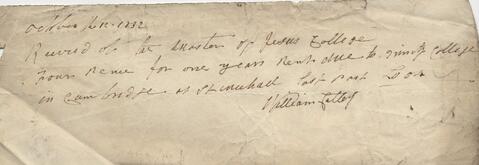 October 12 1832
Received of the Master of Jesus College
fours Pence for one years Rent due to Trinity College
in Cambridge at St Michall last past
William Lilley